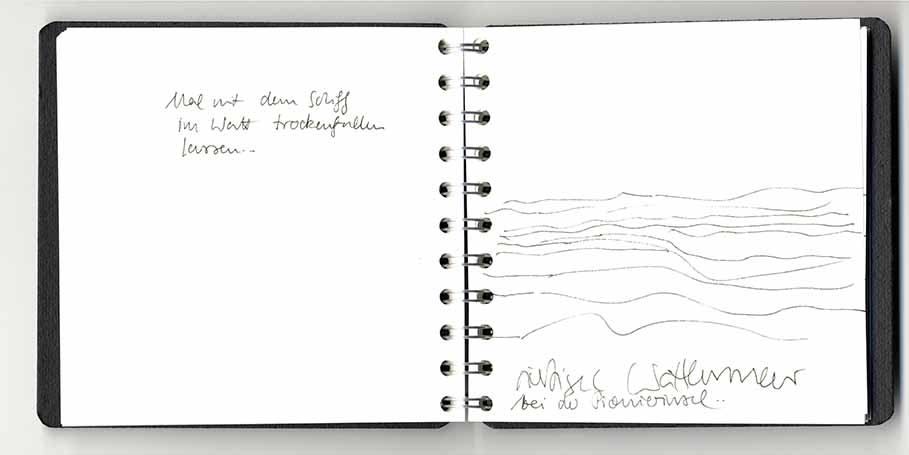 Mal mit dem Schiff
im Watt trockenfallen
lassen...
Wattenmeer
bei der Pionierinsel..